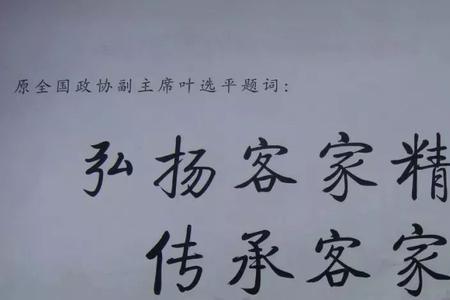 原全国政协副主席叶选平题词：
弘扬客家精
传承客家